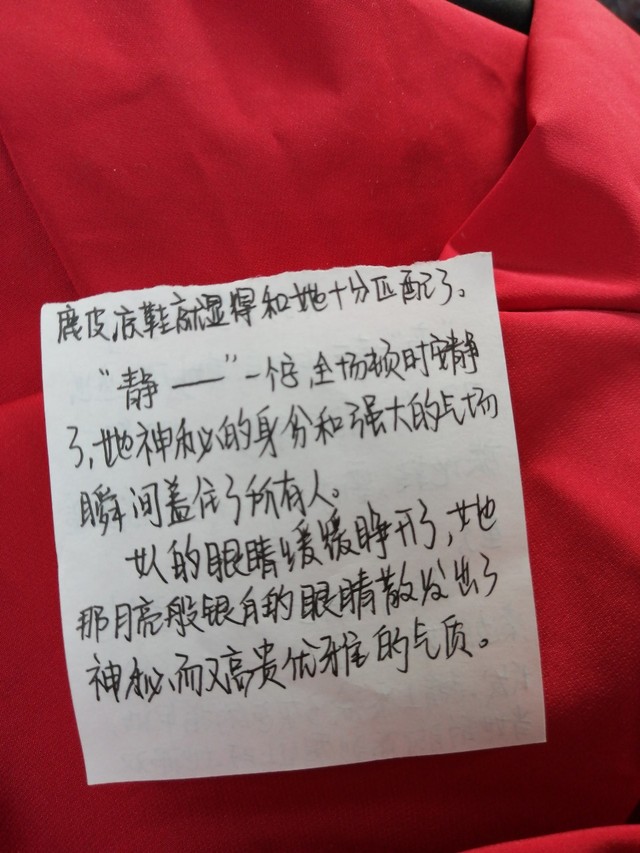 鹿皮底鞋就显得和她十分匹配了。
“静——”一个字，全场顿时安静
了，她神秘的身份和强大的气场
瞬间盖住了所有人。
女人的眼睛缓缓睁开了，她
那月亮般银白的眼睛散发出了
神秘而又高贵优雅的气质。